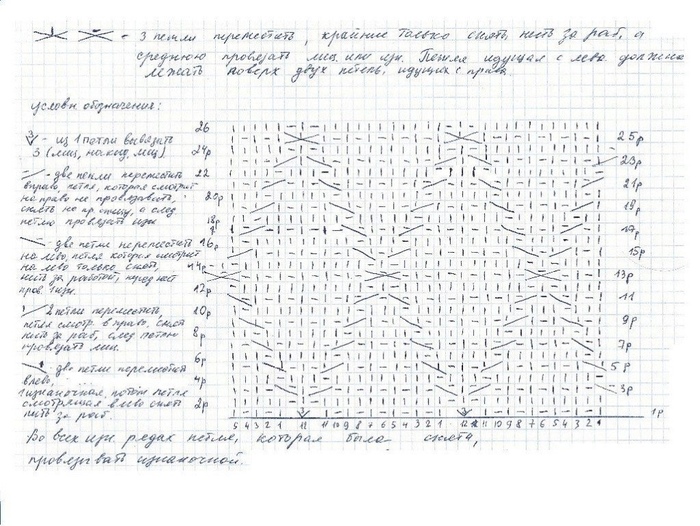 - 3 петли переместить, крайние только снять, нить за раб, а
среднюю провязать лиц или изн. Петля идущая с лева должна
лежать поверх двух петель, идущих с права
условн обозначения:
3 - из 1 петли вывязать
3 (лиц, накид, лиц)
- две петли переместить
вправо, петля, которая смотрит
на право не провязывать,
снять на пр спицу, а след
петлю провязать изн
- две петли переместить
на лево, петля которая смотрит
на лево только снять,
нить за работой, перед ней
пров 1 изн.
2 петли переместить,
петля смотр в право, снять
нить за раб, след петлю
провязать лиц.
- две петли переместить
влево,
1 изнаночная, потом петля
смотрящая влево снять
нить за раб.
26
24р
22
20р
18р
16р
14р
12р
10р
8р
6р
4р
2р
25р
23р
21р
19р
17р
15р
13р
11
9р
7р
5р
3р
1р
Во всех изн рядах петля, которая была снята,
провязывать изнаночной.